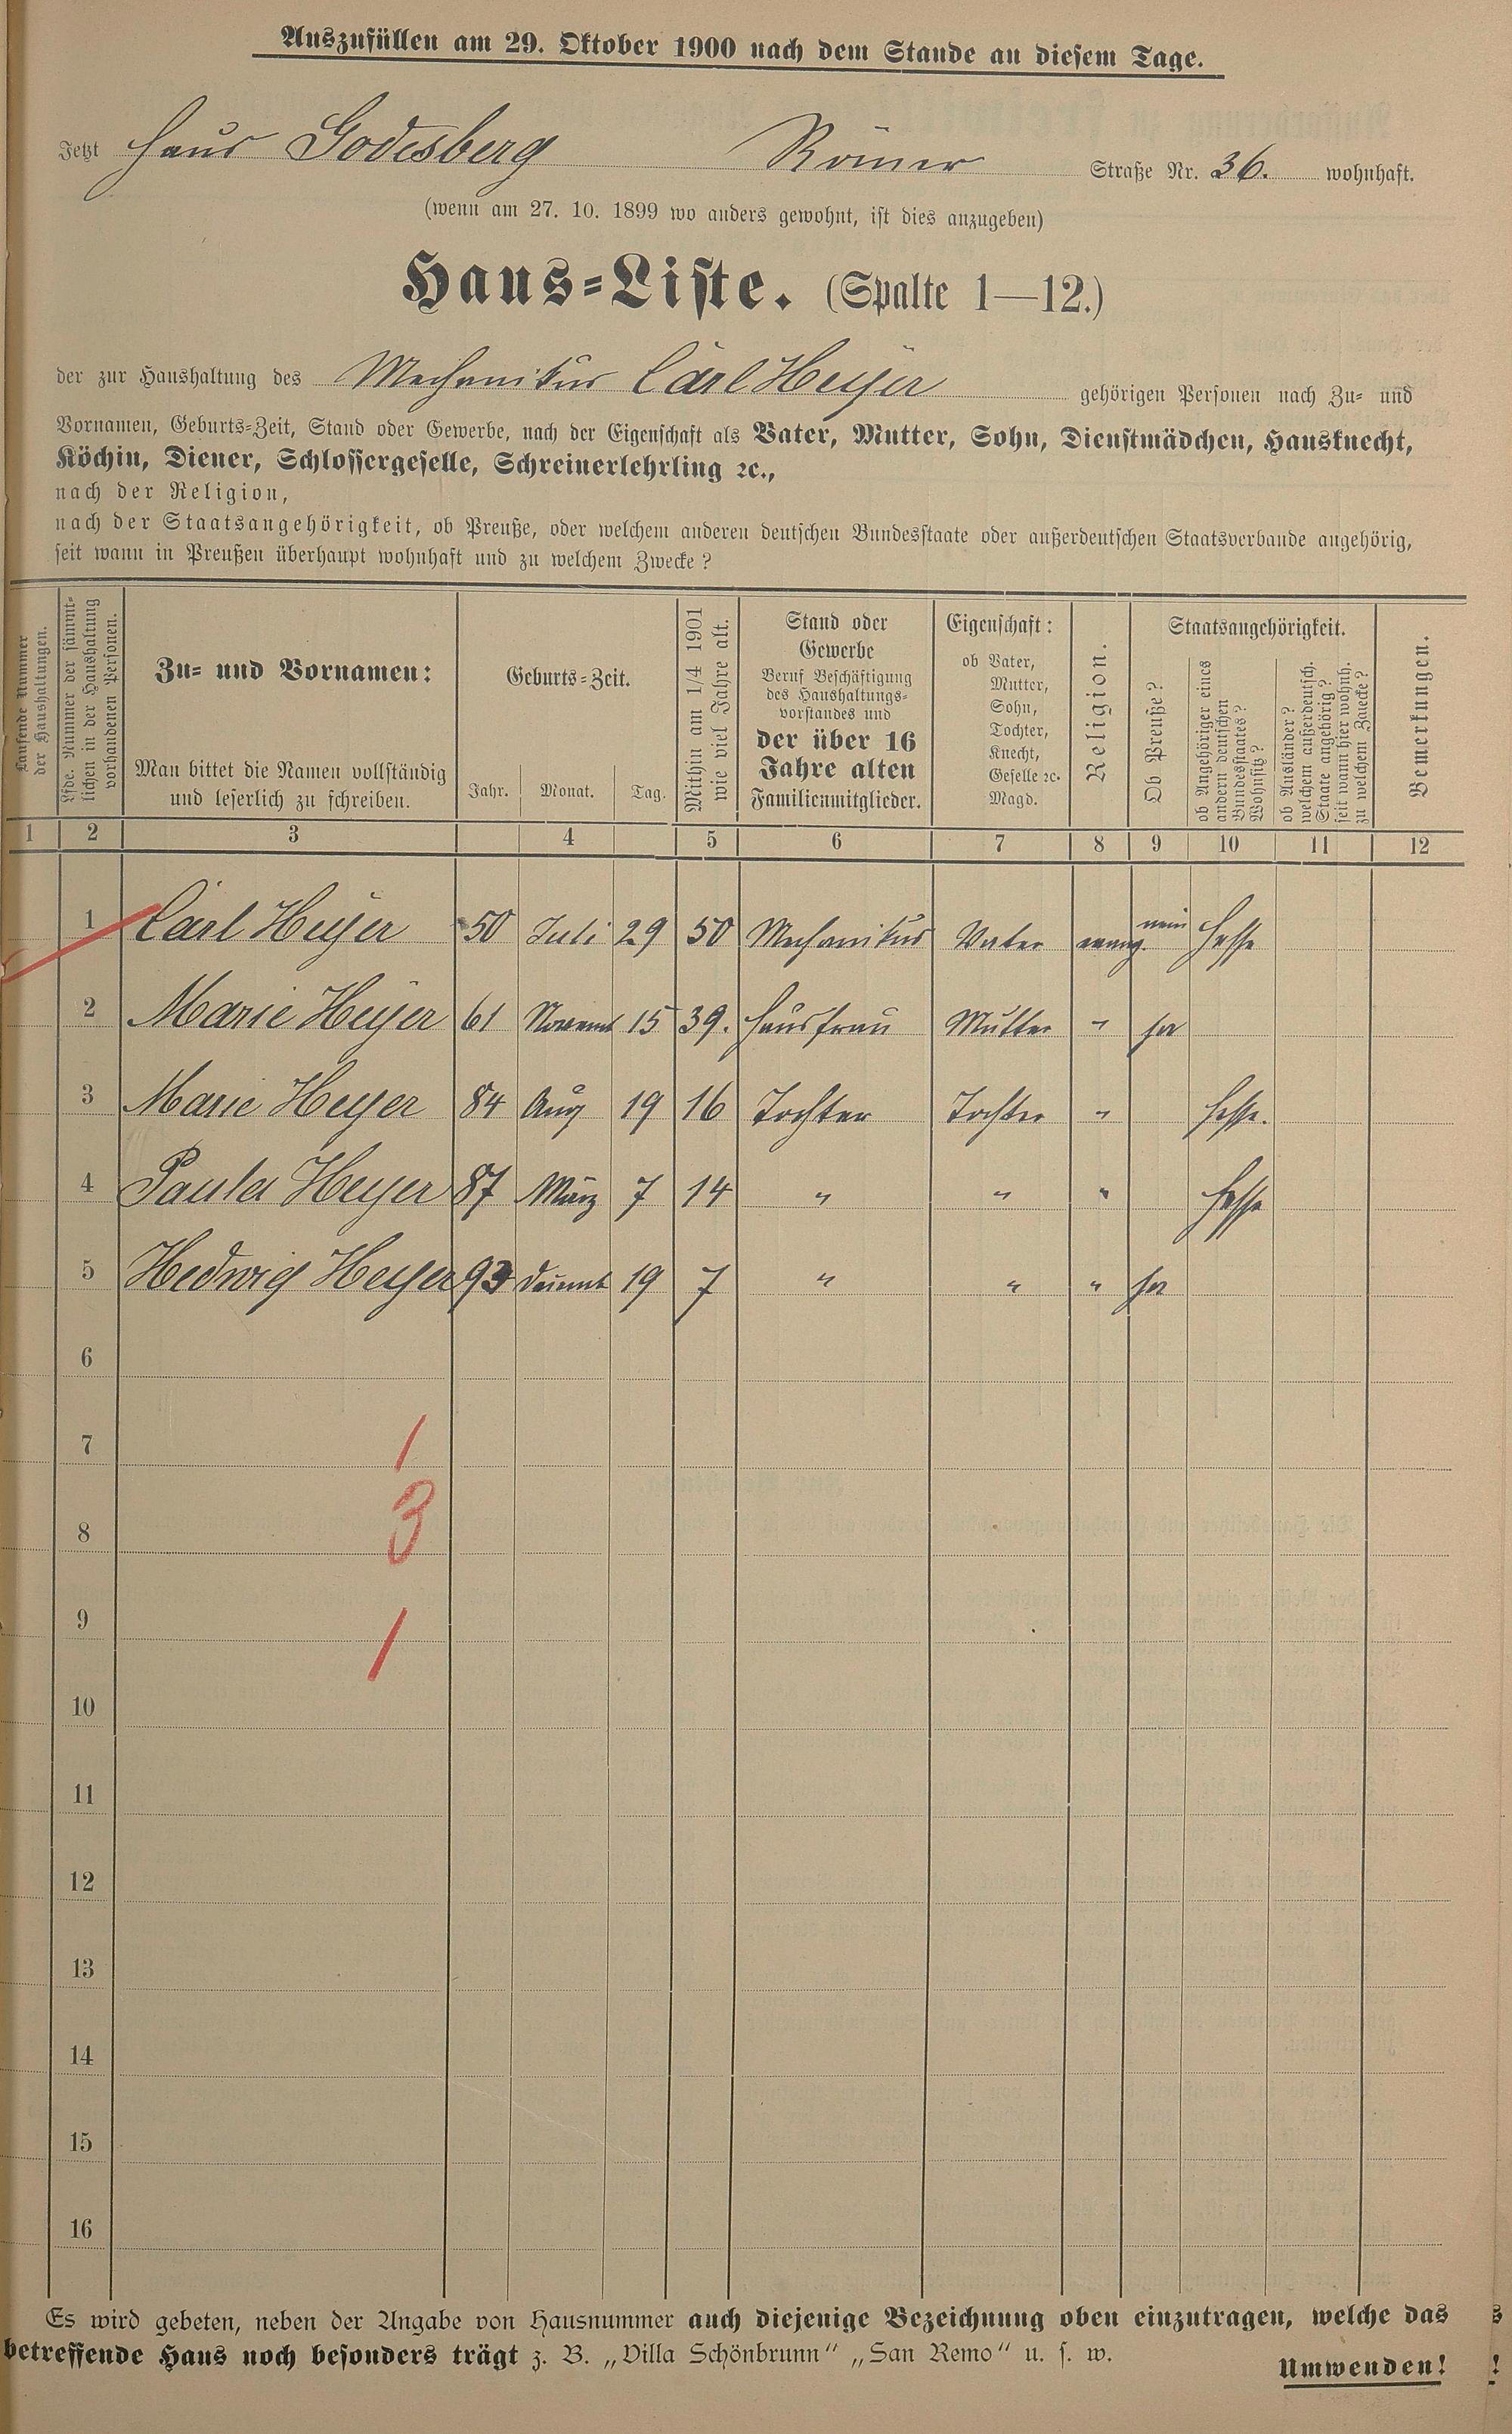 Auszufüllen am 29. Oktober 1900 nach dem Stande an diesem Tage.
Jetzt Haus Godesberg Römer Straße Nr. 36. wohnhaft.
(wenn am 27. 10. 1899 wo anders gewohnt, ist dies anzugeben)
Haus-Liste. (Spalte 1—12.)
der zur Haushaltung des Mechanikus Carl Heyer gehörigen Personen nach Zu- und
Vornamen, Geburts-Zeit, Stand oder Gewerbe, nach der Eigenschaft als Vater, Mutter, Sohn, Dienstmädchen, Hausknecht,
Köchin, Diener, Schlossergeselle, Schreinerlehrling ꝛc.,
nach der Religion,
nach der Staatsangehörigkeit, ob Preuße, oder welchem anderen deutschen Bundesstaate oder außerdeutschen Staatsverbande angehörig,
seit wann in Preußen überhaupt wohnhaft und zu welchem Zwecke?
Laufende Nummer
der Haushaltungen.
Lfde. Nummer der sämmt-
lichen in der Haushaltung
vorhandenen Personen.
Zu- und Vornamen:
Man bittet die Namen vollständig
und leserlich zu schreiben.
Geburts-Zeit.
Jahr. Monat. Tag.
Mithin am 1/4 1901
wie viel Jahre alt.
Stand oder
Gewerbe
Beruf Beschäftigung
des Haushaltungs-
vorstandes und
der über 16
Jahre alten
Familienmitglieder.
Eigenschaft:
ob Vater,
Mutter,
Sohn,
Tochter,
Knecht,
Geselle ꝛc.
Magd.
Religion.
Staatsangehörigkeit.
Ob Preuße?
ob Angehöriger eines
andern deutschen
Bundesstaates?
Wohnsitz?
ob Ausländer?
welchem außerdeutsch.
Staate angehörig?
seit wann hier wohnh.
zu welchem Zwecke?
Bemerkungen.
1 2 3 4 5 6 7 8 9 10 11 12
1 Carl Heyer 50 Juli 29 50 Mechanikus Vater evang. nein Hesse
2 Marie Heyer 61 Novemb 15 39. Hausfrau Mutter " ja
3 Marie Heyer 84 Aug 19 16 Tochter Tochter " Hesse.
4 Paula Heyer 87 März 7 14 " " " Hesse
5 Hedwig Heyer 93 19 7 " " " ja
6
7 1
8 3
9 1
10
11
12
13
14
15
16
Es wird gebeten, neben der Angabe von Hausnummer auch diejenige Bezeichnung oben einzutragen, welche das
betreffende Haus noch besonders trägt z. B. „Villa Schönbrunn“ „San Remo“ u. s. w.
Umwenden!